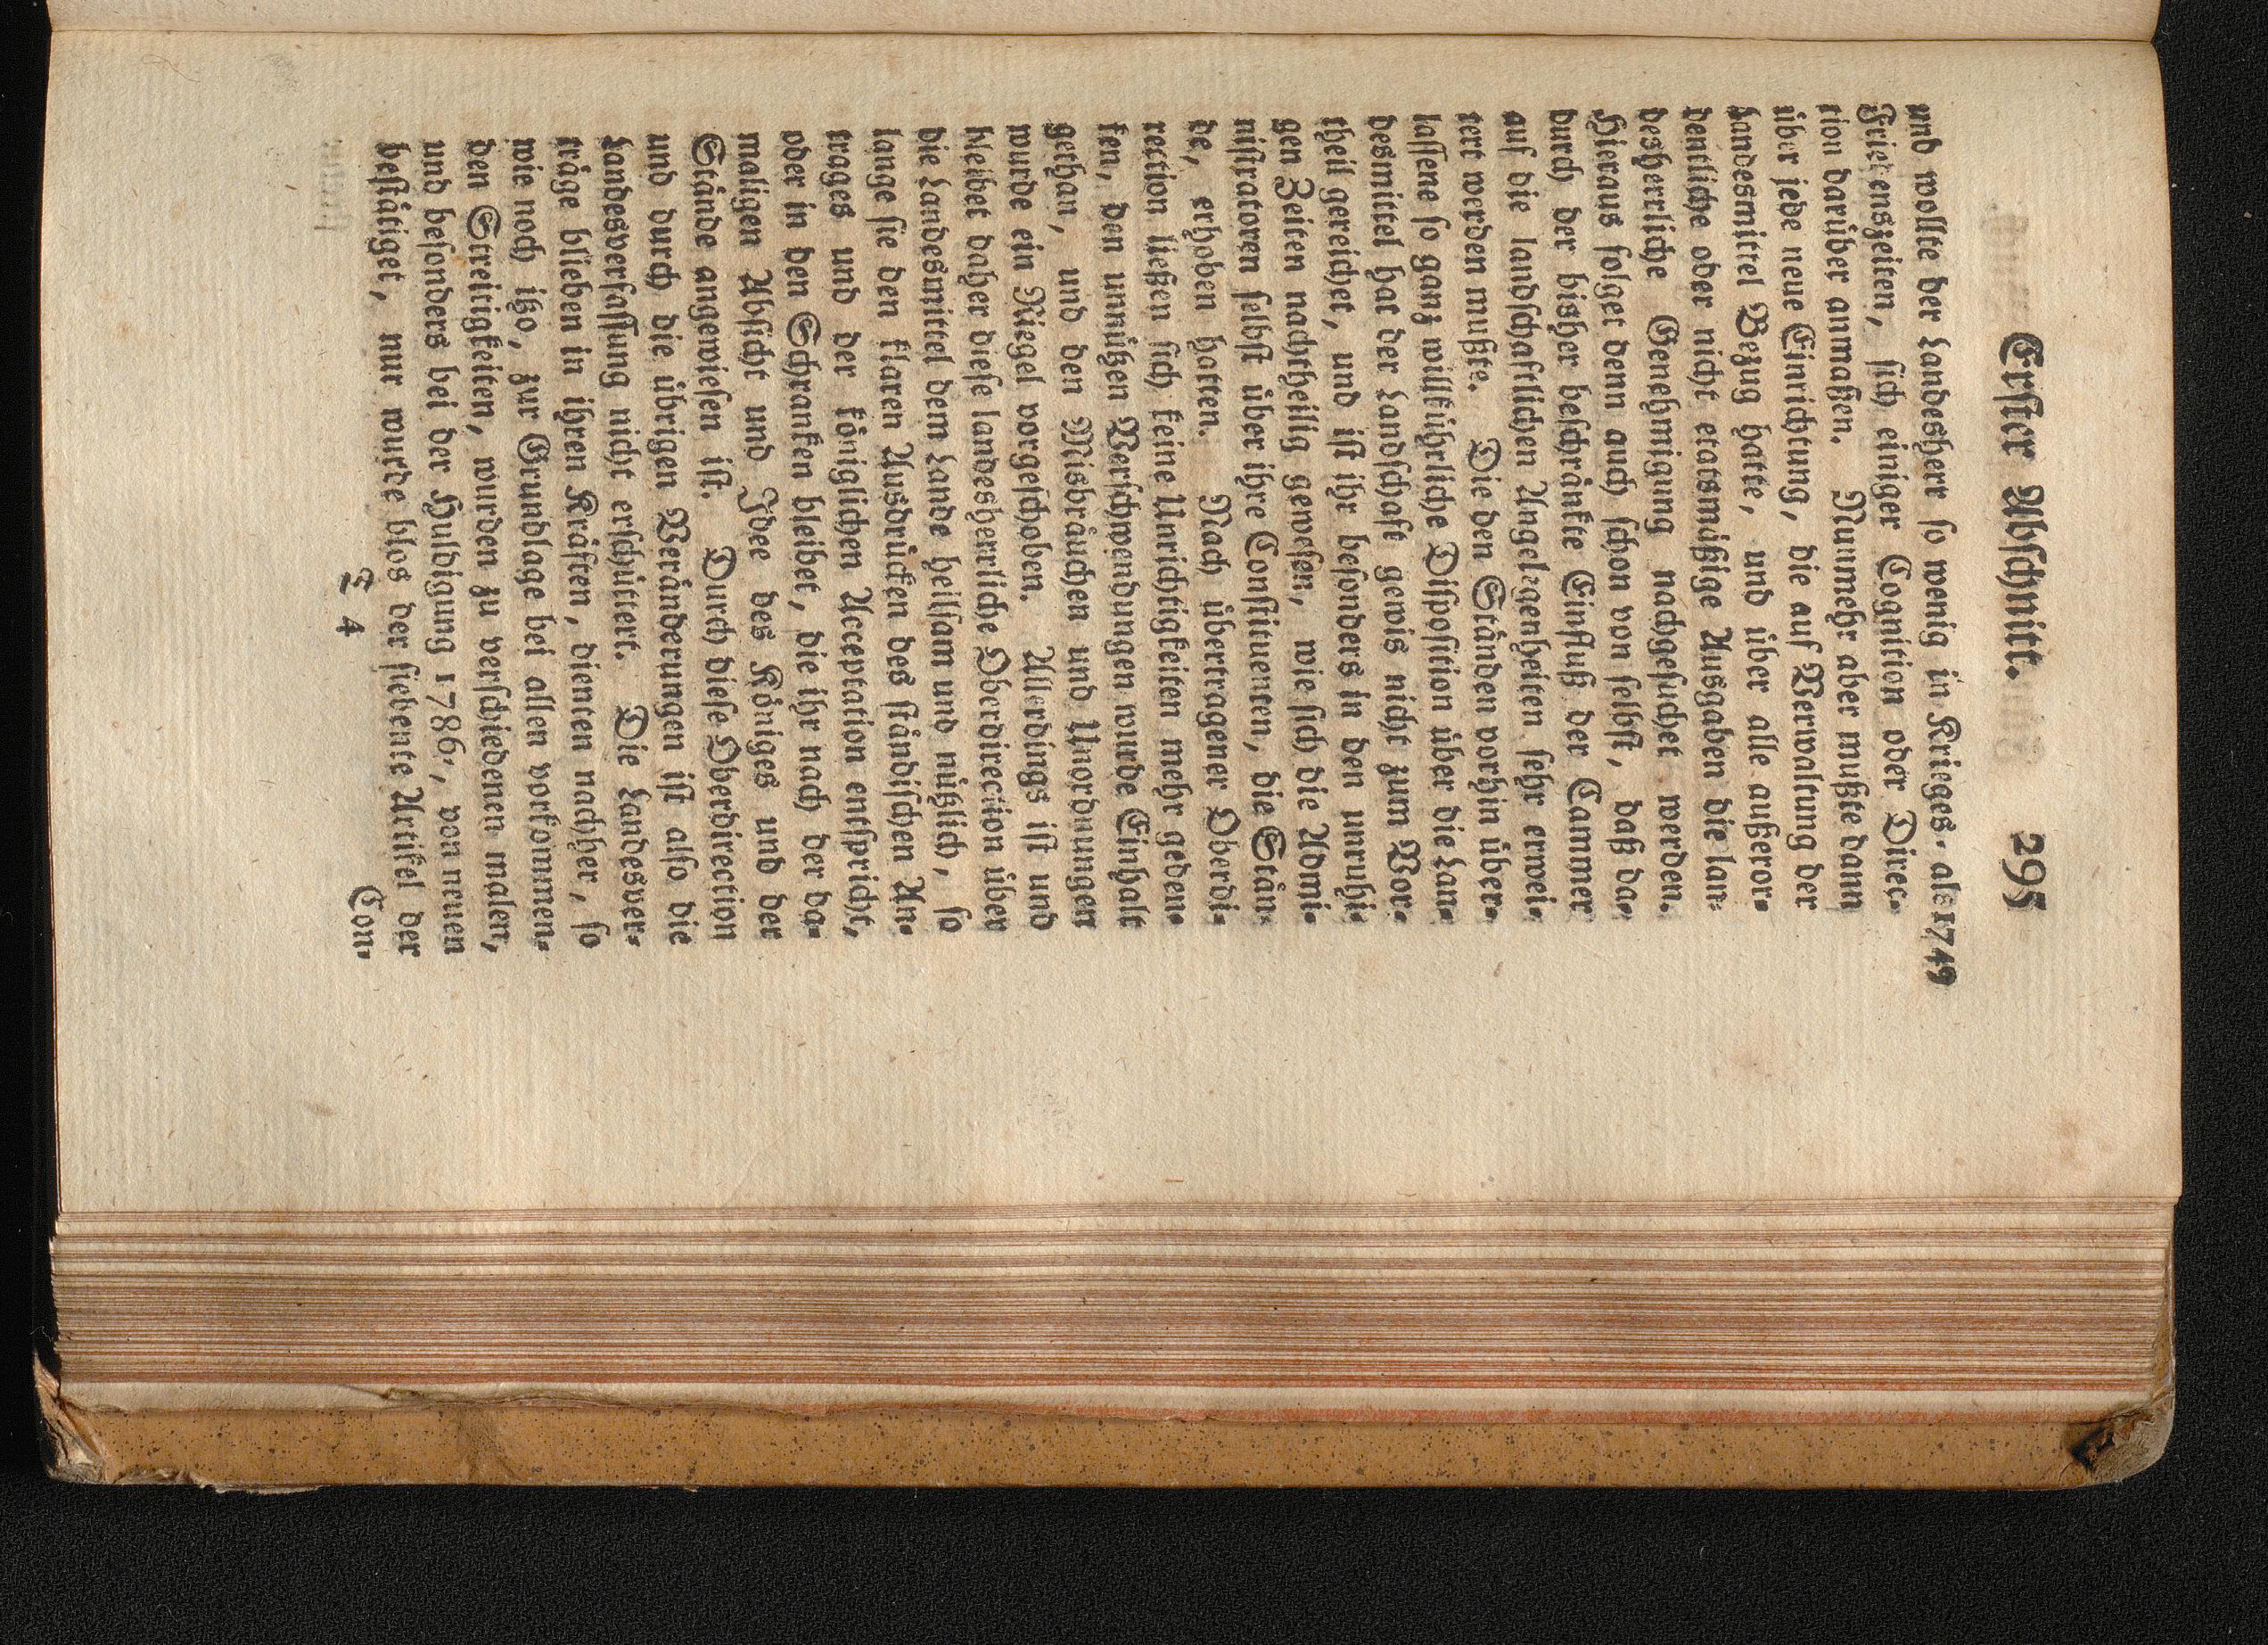 Erſter Abſchnitt. 295
und wollte der Landesherr ſo wenig in Krieges- als 1749
Friedenszeiten, ſich einiger Cognition oder Direc-
tion darüber anmaßen. Nunmehr aber mußte dann
über jede neue Einrichtung, die auf Verwaltung der
Landesmittel Bezug hatte, und über alle außeror-
dentliche oder nicht etatsmäßige Ausgaben die lan-
desherrliche Genehmigung nachgeſuchet werden.
Hieraus folget denn auch ſchon von ſelbſt, daß da-
durch der bisher beſchränkte Einfluß der Cammer
auf die landſchaftlichen Angelegenheiten ſehr erwei-
tert werden mußte. Die den Ständen vorhin über-
laſſene ſo ganz willkührliche Diſpoſition über die Lan-
desmittel hat der Landſchaft gewis nicht zum Vor-
theil gereichet, und iſt ihr beſonders in den unruhi-
gen Zeiten nachtheilig geweſen, wie ſich die Admi-
niſtratoren ſelbſt über ihre Conſtituenten, die Stän-
de, erhoben hatten. Nach übertragener Oberdi-
rection ließen ſich keine Unrichtigkeiten mehr geden-
ken, den unnützen Verſchwendungen wurde Einhalt
gethan, und den Misbräuchen und Unordnungen
wurde ein Riegel vorgeſchoben. Allerdings iſt und
bleibet daher dieſe landesherrliche Oberdirection über
die Landesmittel dem Lande heilſam und nützlich, ſo
lange ſie den klaren Ausdrücken des ſtändiſchen An-
trages und der königlichen Acceptation entſpricht,
oder in den Schranken bleibet, die ihr nach der da-
maligen Abſicht und Idee des Königes und der
Stände angewieſen iſt. Durch dieſe Oberdirection
und durch die übrigen Veränderungen iſt alſo die
Landesverfaſſung nicht erſchüttert. Die Landesver-
träge blieben in ihren Kräften, dienten nachher, ſo
wie noch itzo, zur Grundlage bei allen vorkommen-
den Streitigkeiten, wurden zu verſchiedenen malen,
und beſonders bei der Huldigung 1786, von neuen
beſtätiget, nur wurde blos der ſiebente Artikel der
T 4 Con-